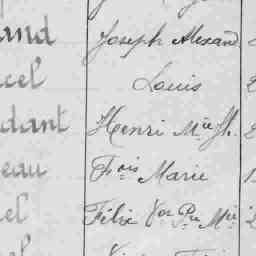 and Joseph Alexand
cel Louis
dant Henri Mie Jh.
eau Fois Marie
el Félix Vor Pre Mie